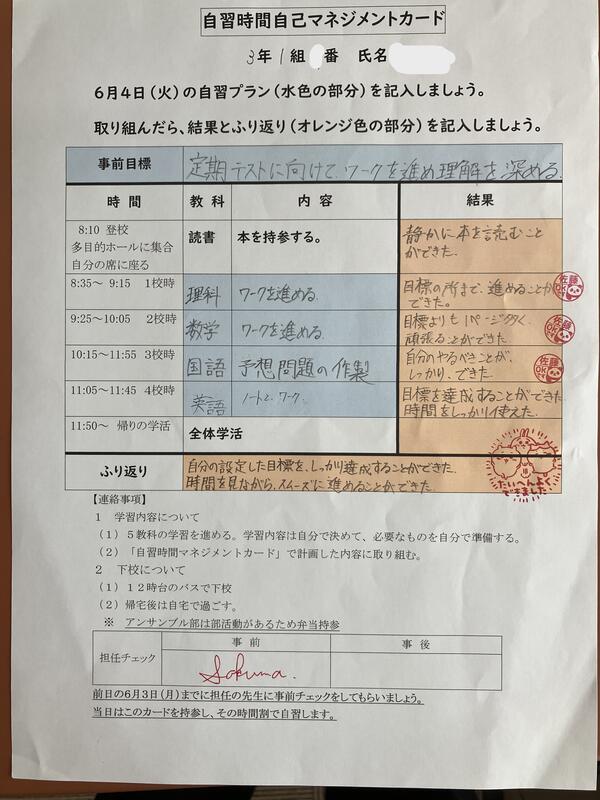 自習時間自己マネジメントカード
3年 1組 番 氏名
6月4日（火）の自習プラン（水色の部分）を記入しましょう。
取り組んだら、結果とふり返り（オレンジ色の部分）を記入しましょう。
事前目標 定期テストに向けて、ワークを進め理解を深める。
時間 教科 内容 結果
8:10 登校
多目的ホールに集合
自分の席に座る
読書 本を持参する。
静かに本を読むこと
ができた。
8:35～ 9:15 1校時 理科 ワークを進める。
目標の所まで、進めることが
できた。
佐藤 OK
9:25～10:05 2校時 数学 ワークを進める。
目標よりも1ページ多く、
頑張ることができた。
佐藤 OK
10:15～11:55 3校時 国語 予想問題の作製
自分のやるべきことが、
しっかり、できた。
佐藤 OK
11:05～11:45 4校時 英語 ノートと、ワーク。
目標を達成することができた
時間をしっかり使えた。
11:50～ 帰りの学活 全体学活
ふり返り
自分の設定した目標を、しっかり達成することができた。
時間を見ながら、スムーズに進めることができた。
たいへんよく
できました
【連絡事項】
1 学習内容について
（1）5教科の学習を進める。学習内容は自分で決めて、必要なものを自分で準備する。
（2）「自習時間マネジメントカード」で計画した内容に取り組む。
2 下校について
（1）12時台のバスで下校
（2）帰宅後は自宅で過ごす。
※ アンサンブル部は部活動があるため弁当持参
担任チェック 事前 事後
Sakuma.
前日の6月3日（月）までに担任の先生に事前チェックをしてもらいましょう。
当日はこのカードを持参し、その時間割で自習します。